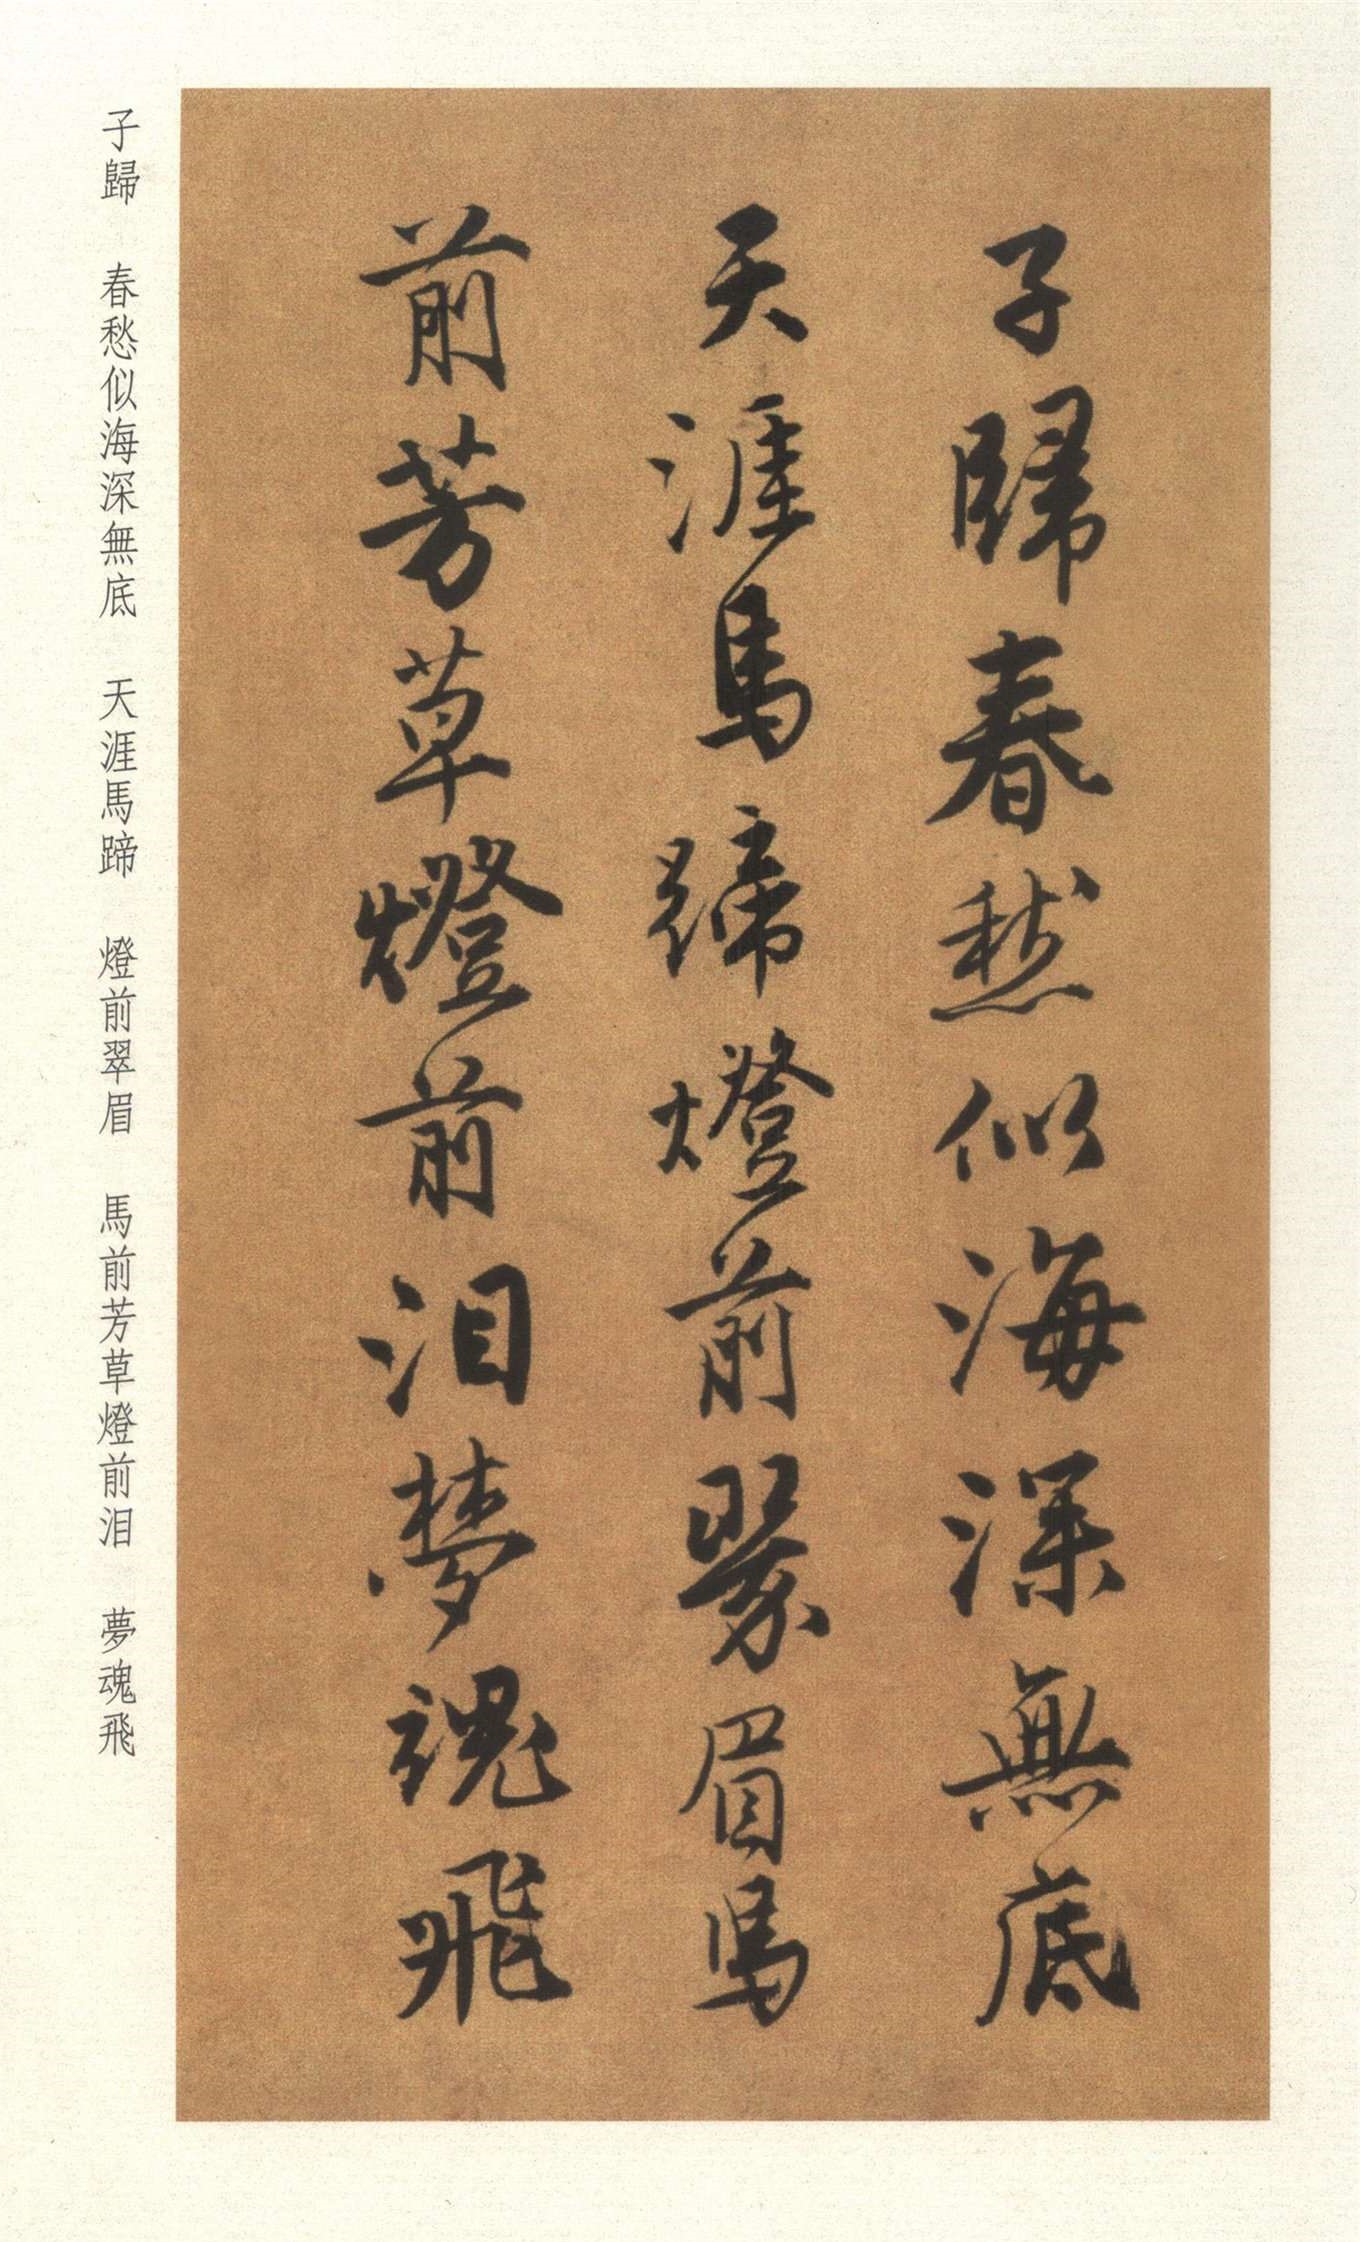 子歸春愁似海深無底
天涯馬蹄燈前翠眉馬
前芳草燈前泪夢魂飛
子歸　春愁似海深無底　天涯馬蹄　燈前翠眉　馬前芳草燈前泪　夢魂飛